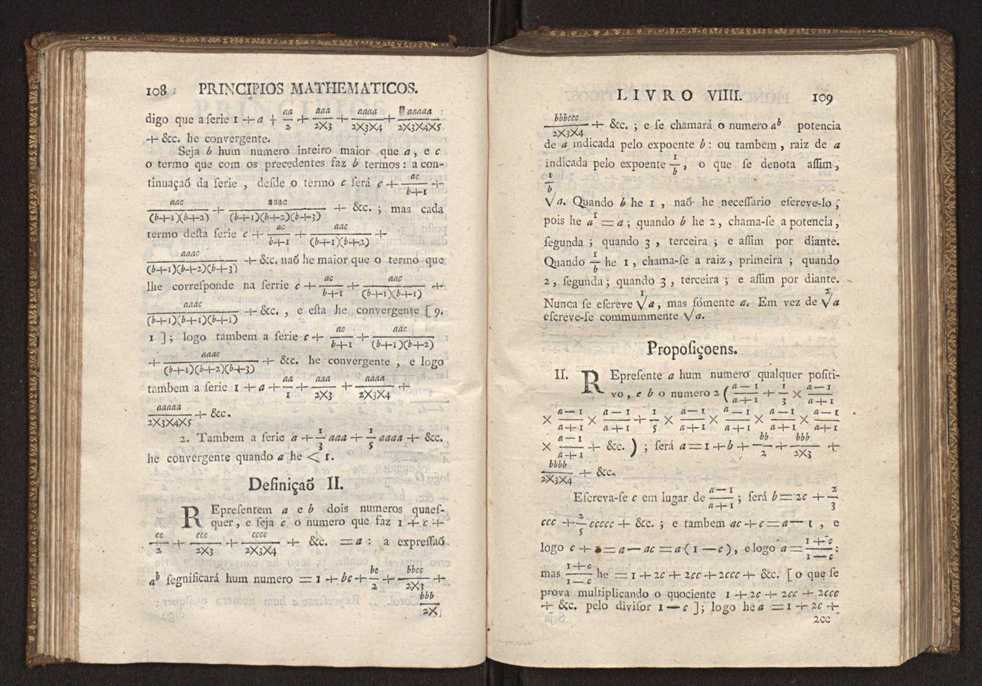 108 PRINCIPIOS MATHEMATICOS.
digo que a serie 1 + a + aa/2 + aaa/2×3 + aaaa/2×3×4 + aaaaa/2×3×4×5
+ &c. he convergente.
Seja b hum numero inteiro maior que a, e c
o termo que com os precedentes faz b termos: a con-
tinuaçaõ da serie, desde o termo c será c + ac/b+1 +
aac/(b+1)(b+2) + aaac/(b+1)(b+2)(b+3) + &c.; mas cada
termo desta serie c + ac/b+1 + aac/(b+1)(b+2) +
aaac/(b+1)(b+2)(b+3) + &c. naõ he maior que o termo que
lhe corresponde na serrie c + ac/b+1 + aac/(b+1)(b+1) +
aaac/(b+1)(b+1)(b+1) + &c., e esta he convergente [ 9.
1 ]; logo tambem a serie c + ac/b+1 + aac/(b+1)(b+2)
+ aaac/(b+1)(b+2)(b+3) + &c. he convergente, e logo
tambem a serie 1 + a + aa/1 + aaa/2×3 + aaaa/2×3×4 +
aaaaa/2×3×4×5 + &c.
2. Tambem a serie a + 1/3 aaa + 1/5 aaaa + &c.
he convergente quando a he < 1.
Definiçaõ II.
REpresentem a e b dois numeros quaes-
quer, e seja c o numero que faz 1 + c +
cc/2 + ccc/2×3 + cccc/2×3×4 + &c. = a: a expressaõ
a^b segnificará hum numero = 1 + bc + bc/2 + bbcc/2×3 +
bbb/2×
LIVRO VIIII. 109
bbbccc/2×3×4 + &c.; e se chamará o numero a^b potencia
de a indicada pelo expoente b: ou tambem, raiz de a
indicada pelo expoente 1/b, o que se denota assim,
1/b
√a. Quando b he 1, naõ he necessario escreve-lo,
pois he a^1 = a; quando b he 2, chama-se a potencia,
segunda; quando 3, terceira; e assim por diante.
Quando 1/b he 1, chama-se a raiz, primeira; quando
2, segunda; quando 3, terceira; e assim por diante.
Nunca se escreve 1√a, mas sómente a. Em vez de 2√a
escreve-se commummente √a.
Proposiçoens.
II. REpresente a hum numero qualquer positi-
vo, e b o numero 2 ( a−1/a+1 + 1/3 × a−1/a+1
× a−1/a+1 × a−1/a+1 + 1/5 × a−1/a+1 × a−1/a+1 × a−1/a+1 × a−1/a+1
× a−1/a+1 + &c. ); será a = 1 + b + bb/2 + bbb/2×3 +
bbbb/2×3×4 + &c.
Escreva-se c em lugar de a−1/a+1; será b = 2c + 2/3
ccc + 2/5 ccccc + &c.; e tambem ac + c = a − 1, e
logo c + = a − ac = a (1 − c), e logo a = 1+c/1−c:
mas 1+c/1−c he = 1 + 2c + 2cc + 2ccc + &c. [ o que se
prova multiplicando o quociente 1 + 2c + 2cc + 2ccc
+ &c. pelo divisor 1 − c ]; logo he a = 1 + 2c +
2cc